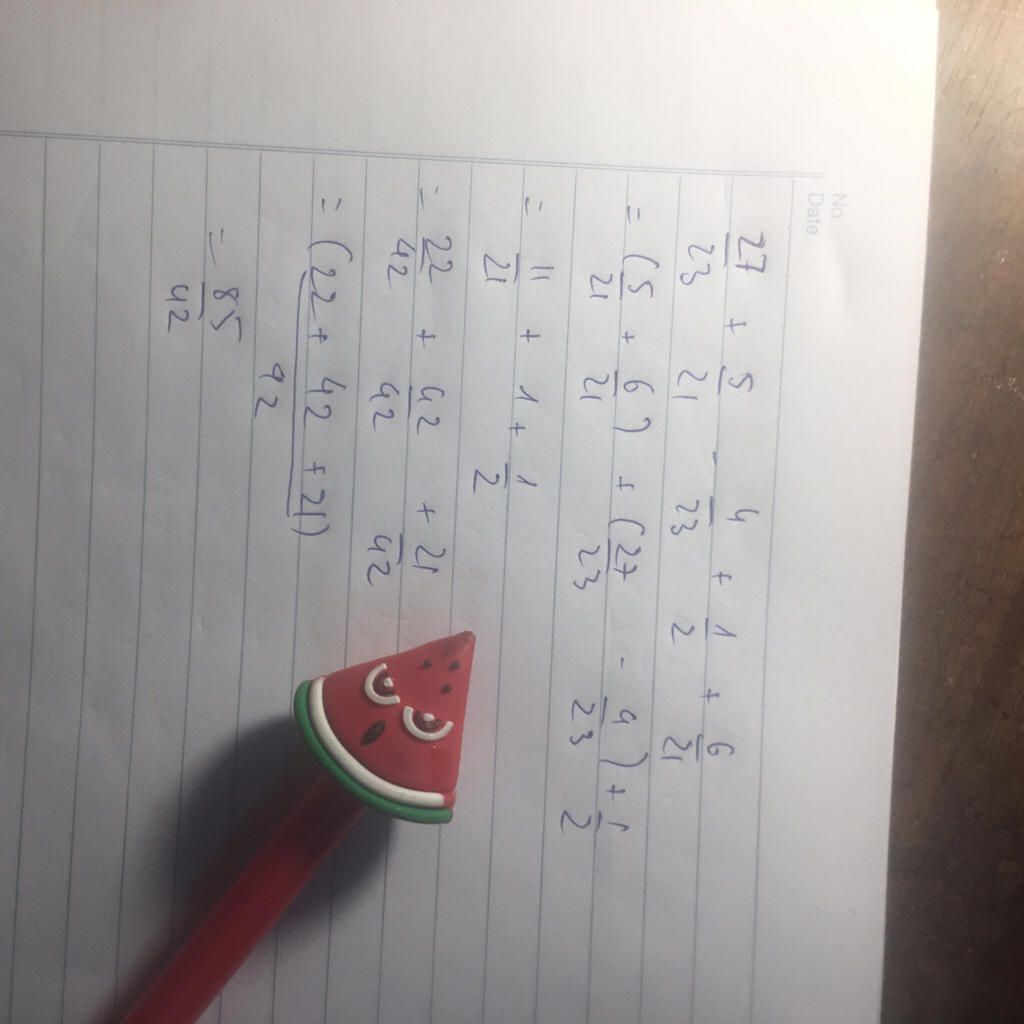 No.
Date
27/23 + 5/21 - 4/23 + 1/2 + 6/21
= (5/21 + 6/21) + (27/23 - 4/23) + 1/2
= 11/21 + 1 + 1/2
= 22/42 + 42/42 + 21/42
= (22 + 42 + 21)/42
= 85/42